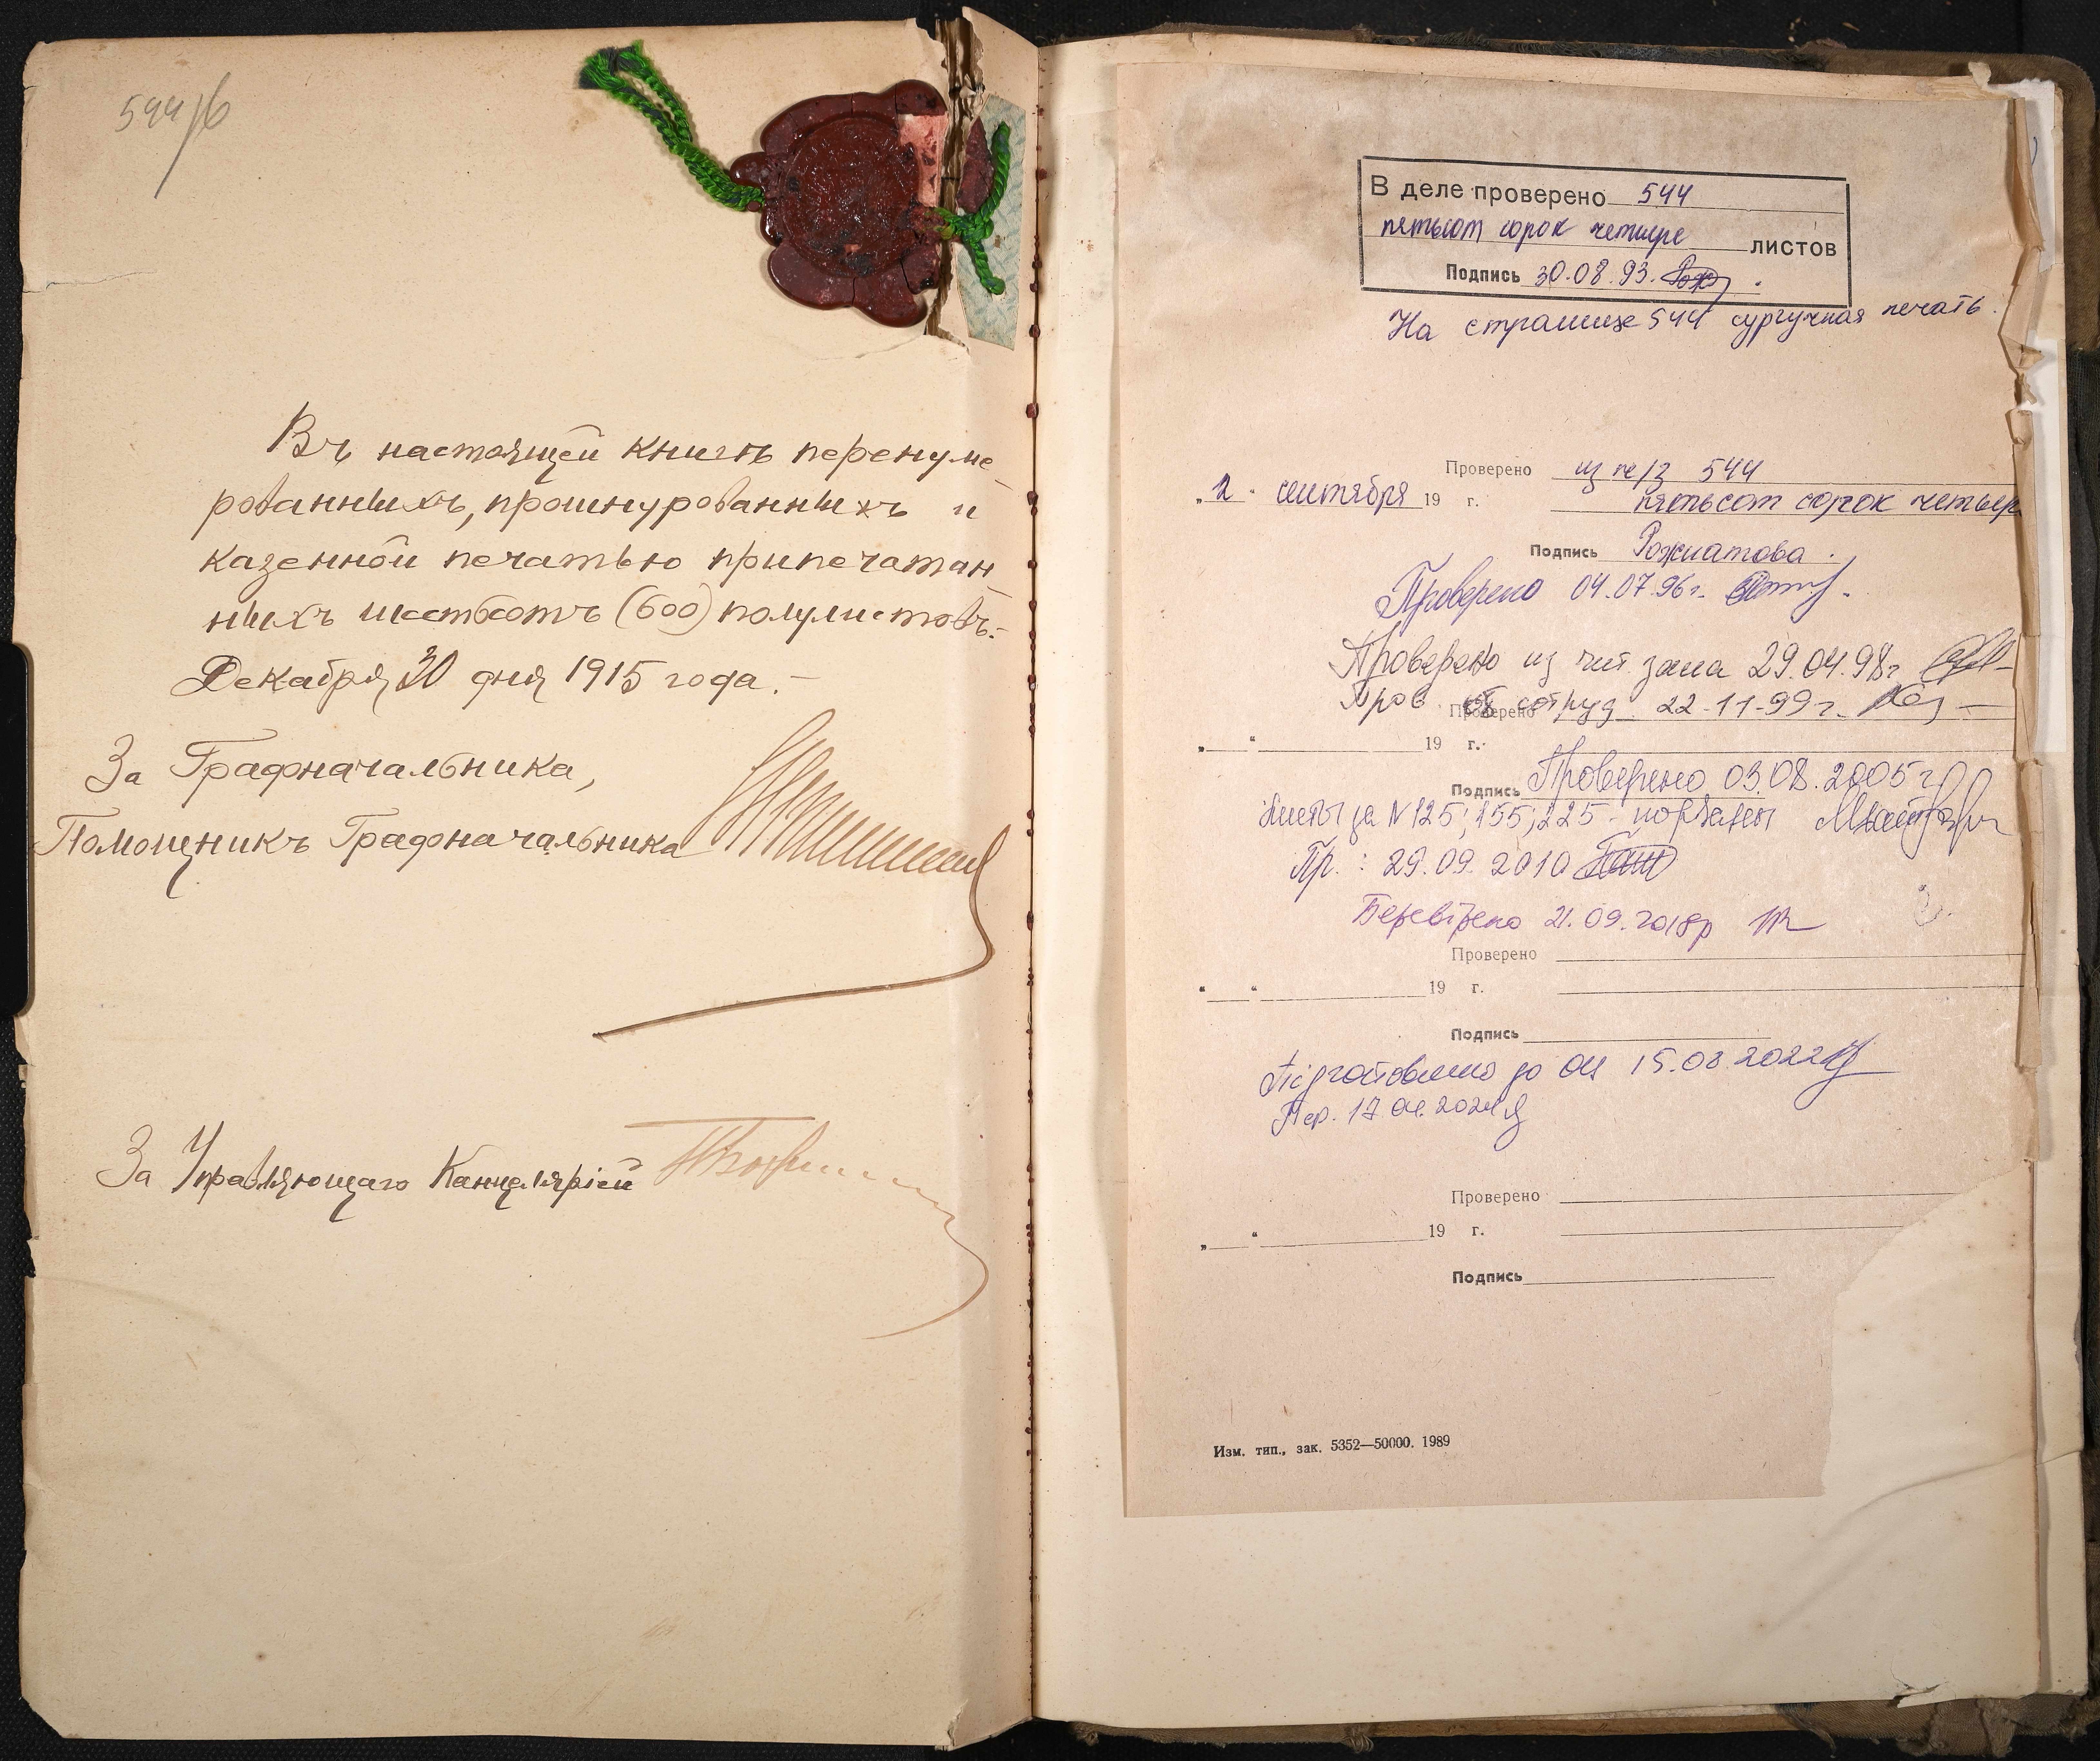 544/б
Въ настоящей книгѣ перенуме
рованныхъ, прошнурованныхъ и
казенной печатью припечатан
ныхъ шестьсотъ (600) полулистовъ.-
Декабря 30 дня 1915 года.-
За Градоначальника,
Помощникъ Градоначальника
За Управляющаго Канцеляріей
В деле проверено 544
пятьсот сорок четыре листов
Подпись 30.08.93.
На странице 544 сургучная печать.
Проверено из 544
„2“ сентября 19 г. пятьсот сорок четыр
Подпись
Проверено 04.07.96г.
Проверено из чит. зала 29.04.98г
Пров сотруд 22-11-99г.
Проверено
„ “ 19 г.
Подпись Проверено 03.08.2005г
Листы за N 125; 155; 225 - порваны
Пр.: 29.09.2010
Перевірено 21.09.2018р
Проверено
“ “ 19 г.
Подпись
Підготовлено до ОЦ 15.08.2022
Пер.
Проверено
„ “ 19 г.
Подпись
Изм. тип., зак. 5352—50000. 1989